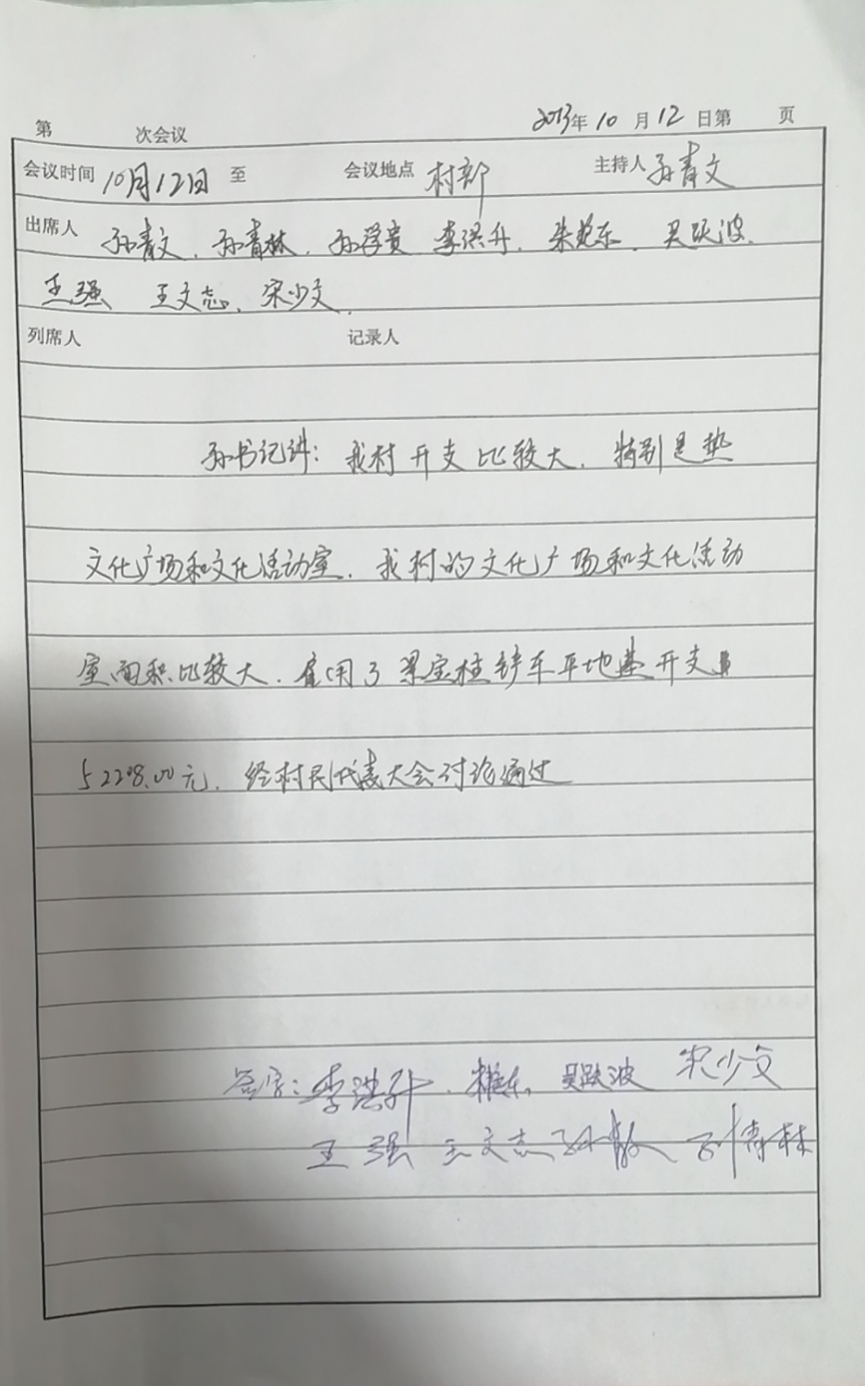 第 次会议 2013年10月12日第 页
会议时间 10月12日 至 会议地点 村部 主持人 孙青文
出席人 孙青文、孙青林、孙学贵 李洪升、朱 东、吴跃波、
王强 王文志、宋少文、
列席人 记录人
孙书记讲:我村开支比较大,特别是垫
文化广场和文化活动室,我村的文化广场和文化活动
室面积比较大,雇用了梁宝柱铲车平地垫开支
52208.00元,经村民代表大会讨论通过
签字:李洪升、 吴跃波 宋少文
王强 王文志 孙青林